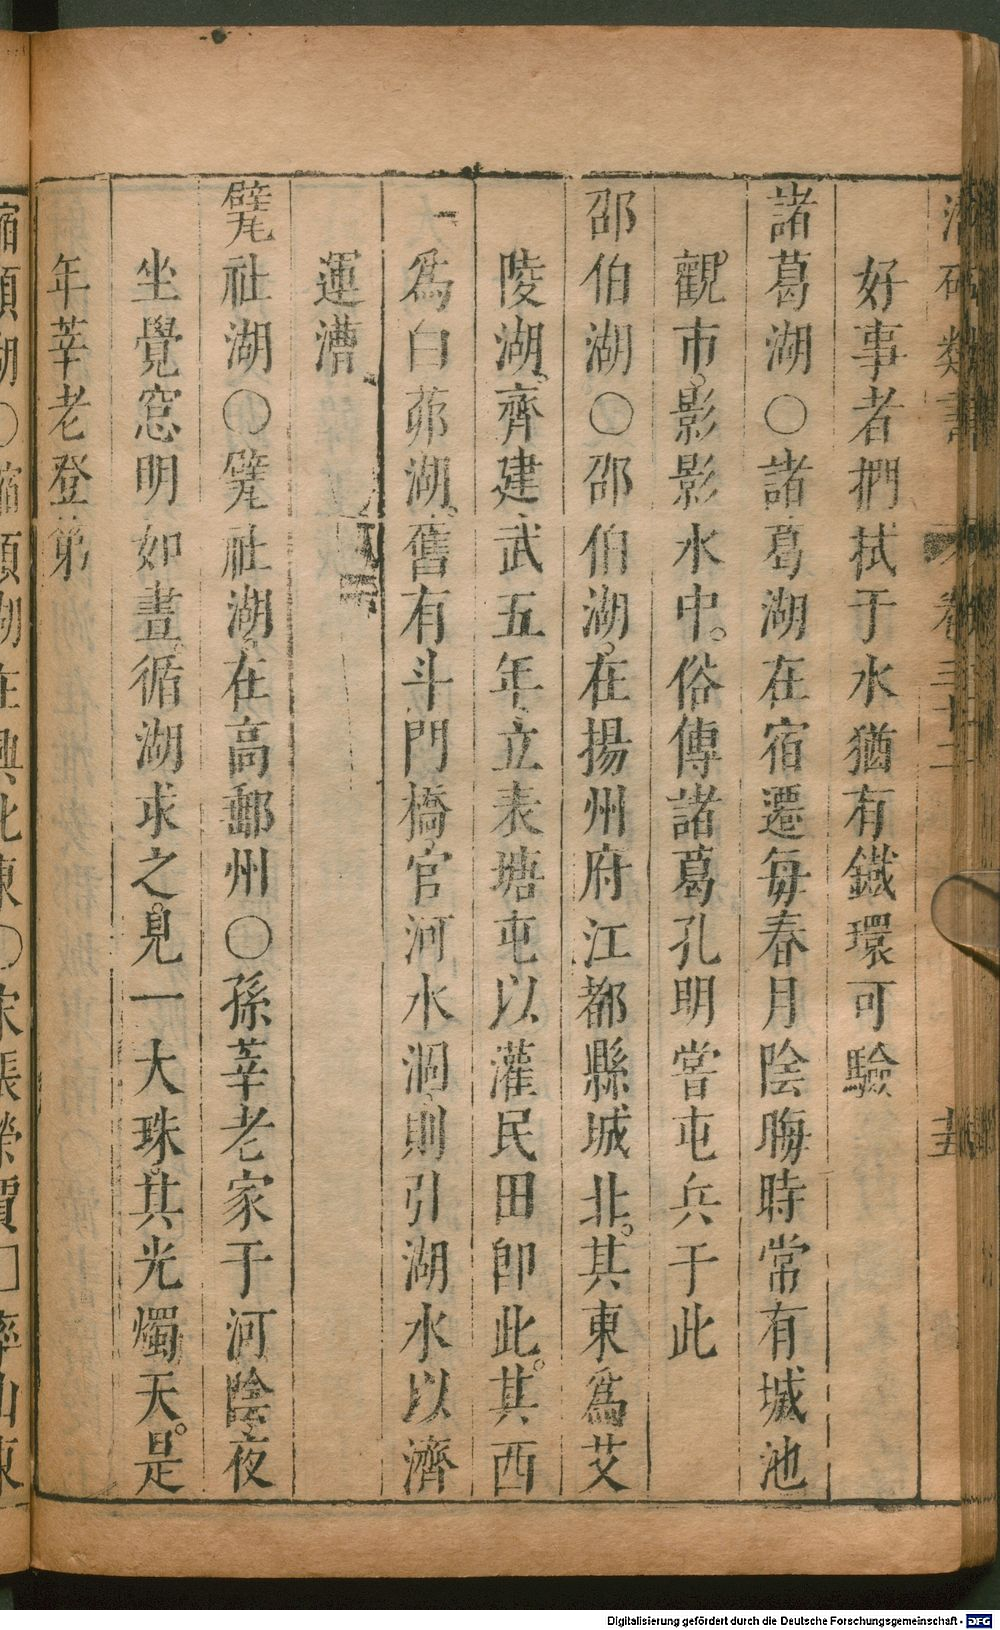 潛確類書 卷三十二 五
好事者捫拭于水猶有鐵環可驗
諸葛湖○諸葛湖在宿遷每春月陰晦時常有城池
觀市影影水中俗傳諸葛孔明嘗屯兵于此
邵伯湖○邵伯湖在揚州府江都縣城北其東爲艾
陵湖齊建武五年立表塘屯以灌民田卽此其西
爲白茆湖舊有斗門橋官河水涸則引湖水以濟
運漕
甓社湖○甓社湖在高郵州○孫莘老家于河陰夜
坐覺窓明如晝循湖求之見一大珠其光燭天是
年莘老登第
縮頭湖○縮頭湖在興化東○宋張榮賈□率山東
Digitalisierung gefördert durch die Deutsche Forschungsgemeinschaft - DFG